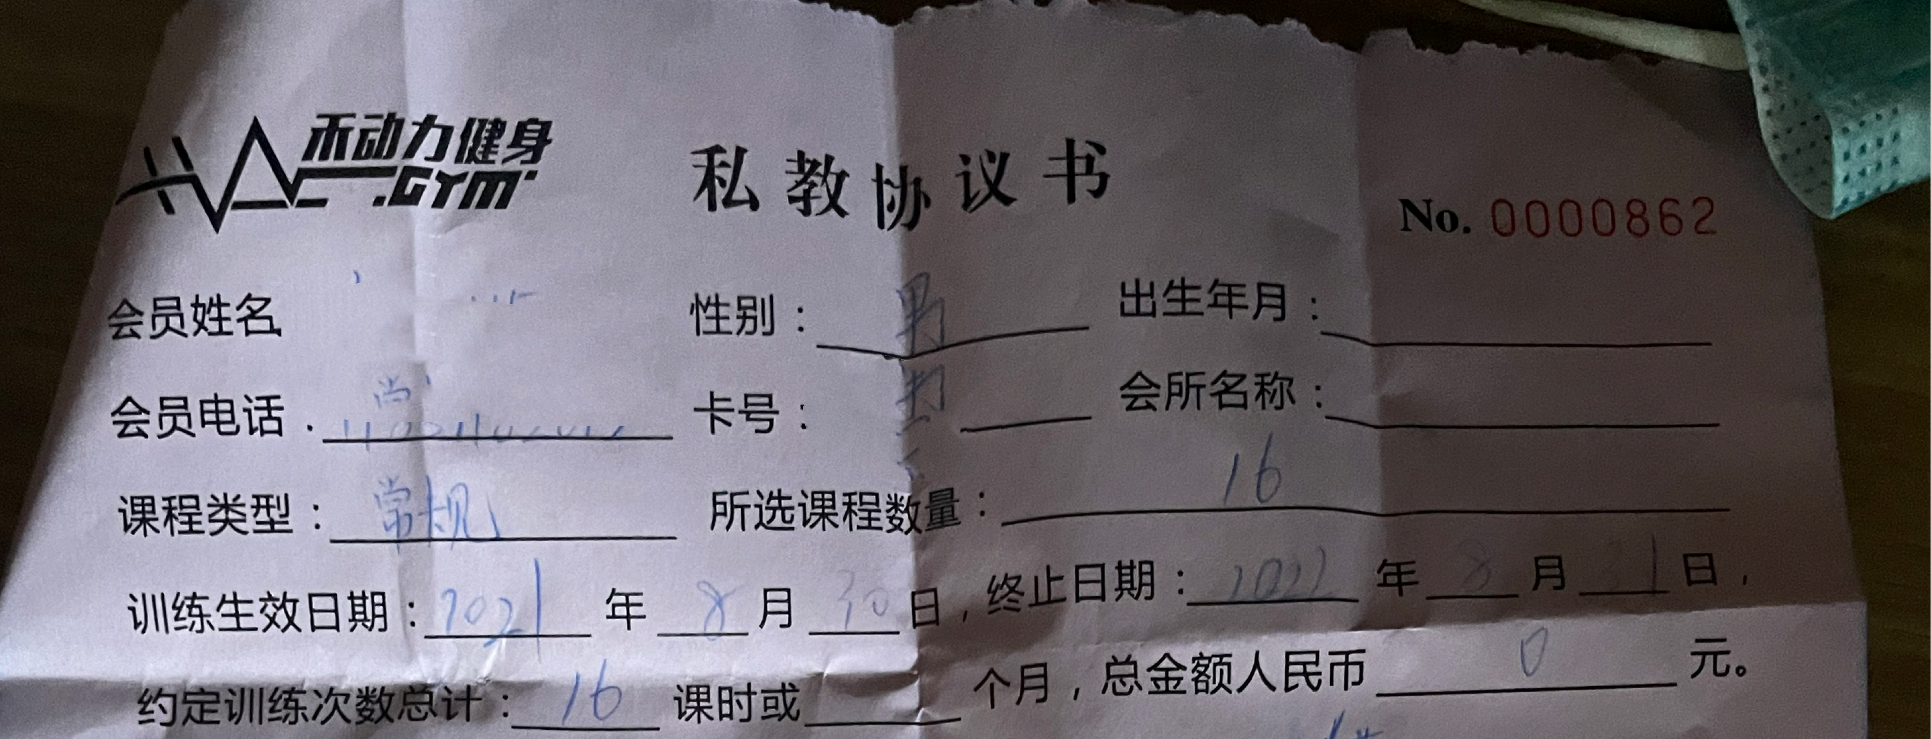 禾动力健身
.GYM
私教协议书
No. 0000862
会员姓名 性别：男 出生年月：
会员电话 卡号： 会所名称：
课程类型：常规 所选课程数量：16
训练生效日期：2021年8月30日，终止日期：2022年8月31日，
约定训练次数总计：16课时或 个月，总金额人民币0元。